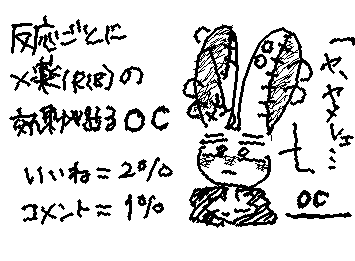 反応ごとに
メ薬(R18)の
効果が出るOC
いいね=20%
コメント=10%
「ヤ、ヤメレェ…
OC